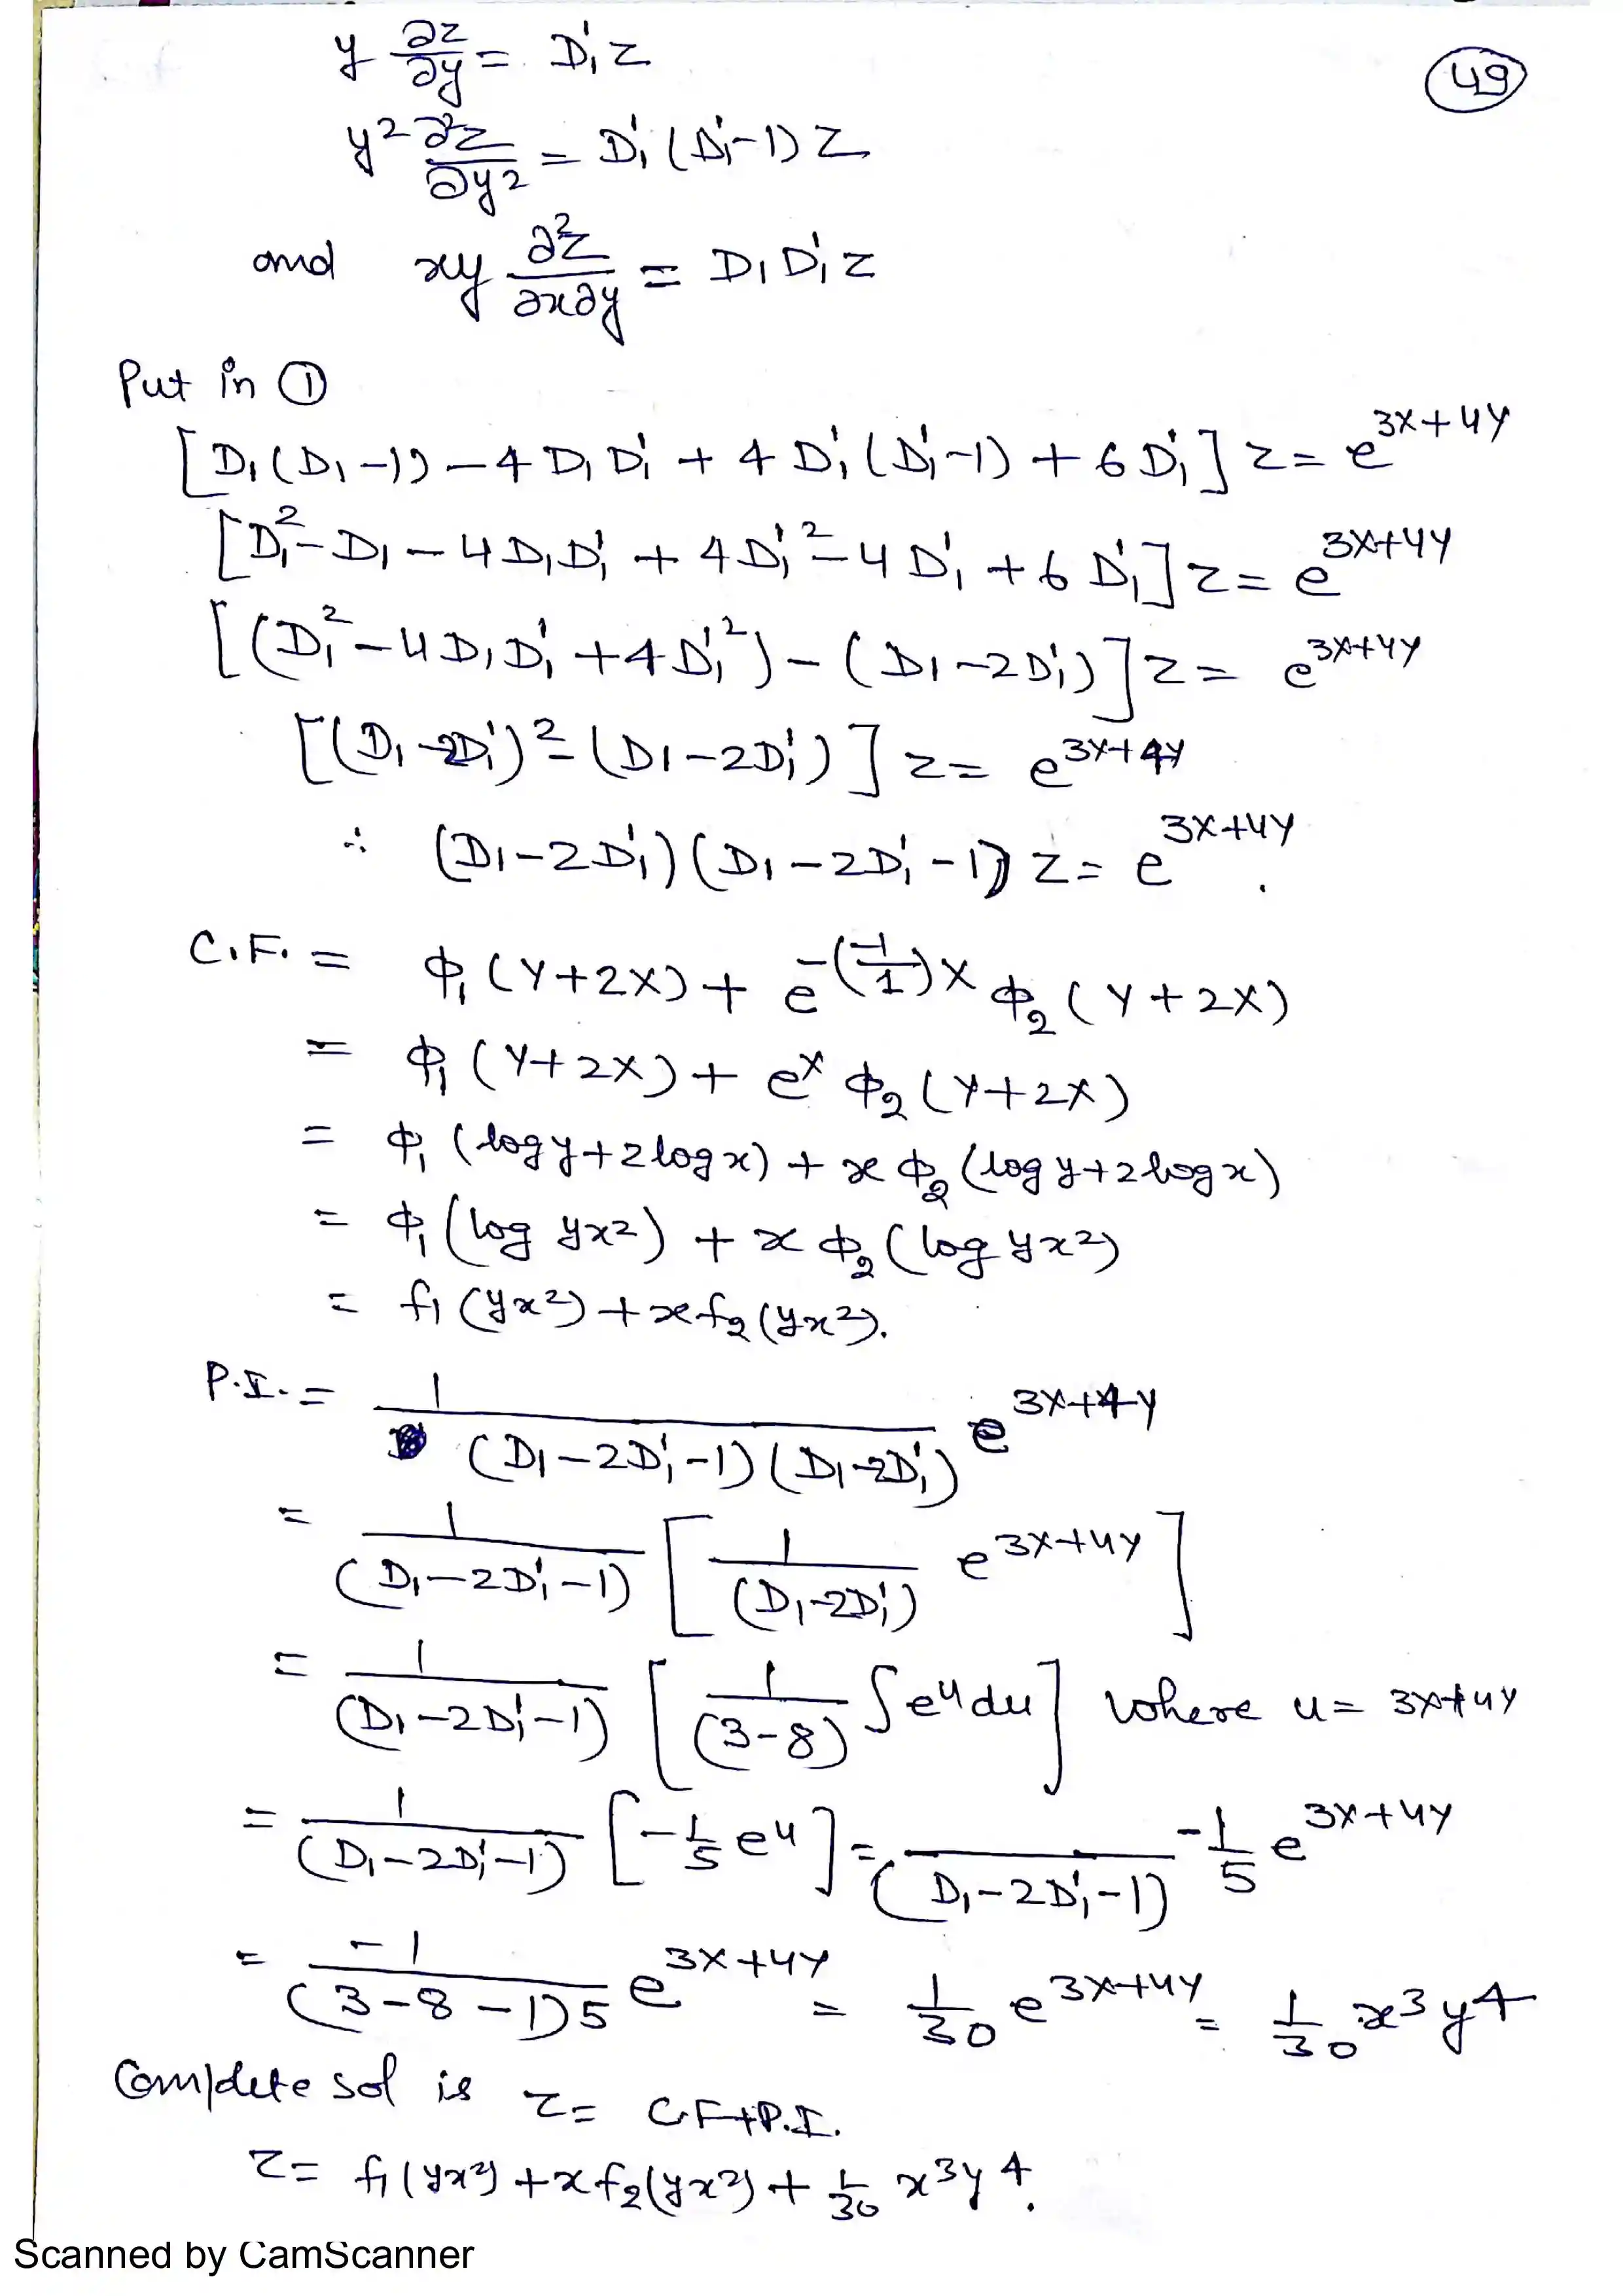 y ∂z/∂y = D₁' z
49
y² ∂²z/∂y² = D₁' (D₁'-1) z
and xy ∂²z/∂x∂y = D₁ D₁' z
Put in ①
[D₁(D₁-1) - 4 D₁ D₁' + 4 D₁' (D₁'-1) + 6 D₁'] z = e^{3X+4Y}
[D₁² - D₁ - 4 D₁D₁' + 4 D₁'² - 4 D₁' + 6 D₁'] z = e^{3X+4Y}
[(D₁² - 4 D₁D₁' + 4 D₁'²) - (D₁ - 2D₁')] z = e^{3X+4Y}
[(D₁ - 2D₁')² - (D₁ - 2D₁')] z = e^{3X+4Y}
∴ (D₁ - 2D₁') (D₁ - 2D₁' - 1) z = e^{3X+4Y}.
C.F. = φ₁ (Y+2X) + e^{-(-1/1)X} φ₂ (Y+2X)
= φ₁ (Y+2X) + e^X φ₂ (Y+2X)
= φ₁ (log y + 2 log x) + x φ₂ (log y + 2 log x)
= φ₁ (log yx²) + x φ₂ (log yx²)
= f₁ (yx²) + x f₂ (yx²).
P.I. = 1/((D₁ - 2D₁' - 1) (D₁ - 2D₁')) e^{3X+4Y}
= 1/(D₁ - 2D₁' - 1) [1/(D₁ - 2D₁') e^{3X+4Y}]
= 1/(D₁ - 2D₁' - 1) [1/(3-8) ∫e^u du] where u = 3X+4Y
= 1/(D₁ - 2D₁' - 1) [-1/5 e^u] = 1/(D₁ - 2D₁' - 1) -1/5 e^{3X+4Y}
= -1/((3-8-1)5) e^{3X+4Y} = 1/30 e^{3X+4Y} = 1/30 x³y⁴
Complete sol is z = C.F+P.I.
z = f₁(yx²) + x f₂(yx²) + 1/30 x³y⁴.
Scanned by CamScanner